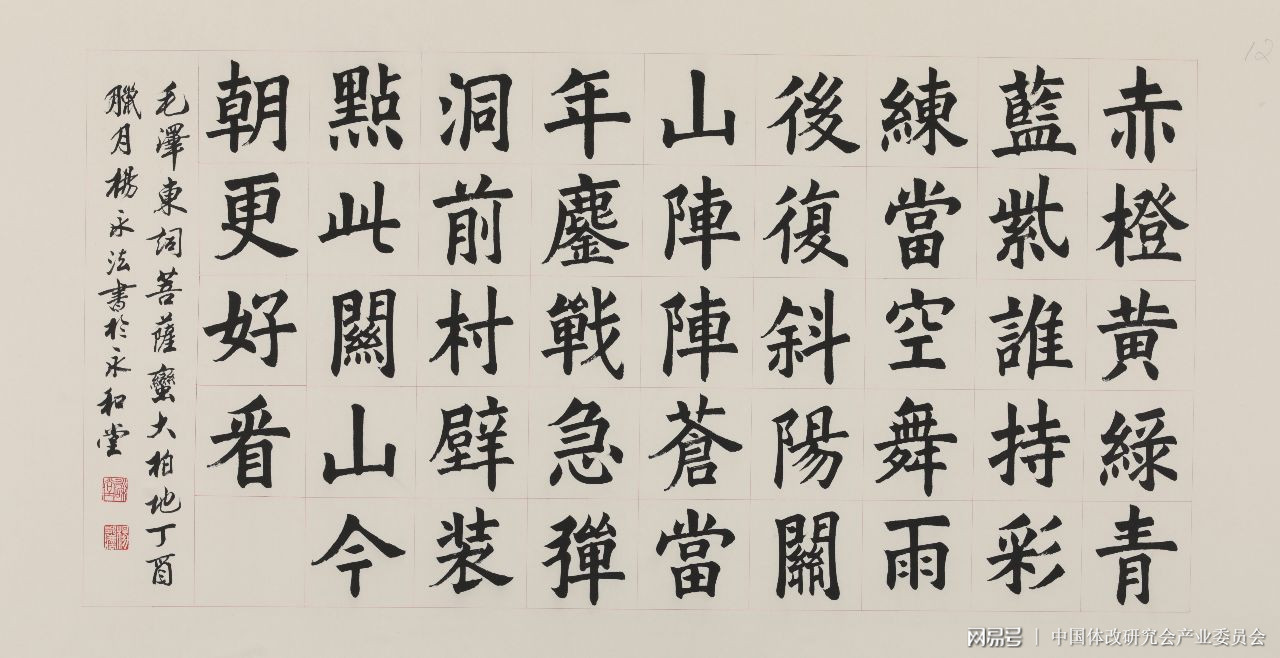 赤橙黄綠青
藍紫誰持彩
練當空舞雨
後復斜陽關
山陣陣蒼當
年鏖戰急彈
洞前村壁装
點此關山今
朝更好看
毛澤東詞菩薩蠻大柏地丁酉
臘月楊永法書於永和堂
12
网易号 | 中国体改研究会产业委员会